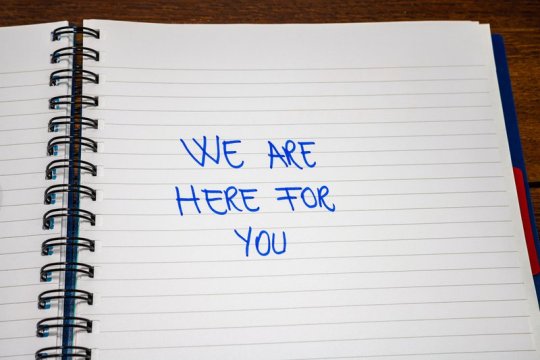 WE ARE
HERE FOR
YOU